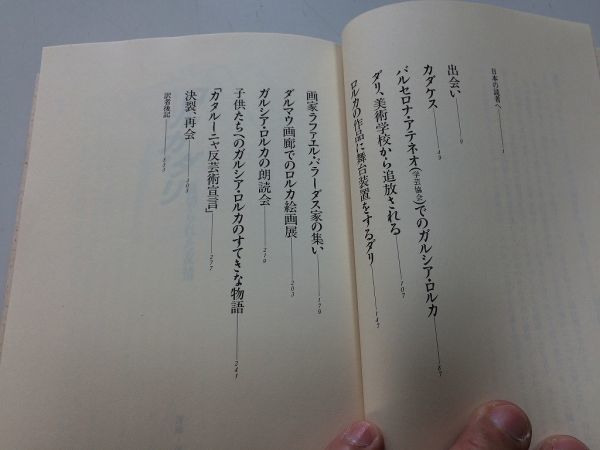 日本の読者へ——1
出会い——9
カダケス——49
バルセロナ・アテネオ(学芸協会)でのガルシア・ロルカ——87
ダリ、美術学校から追放される——107
ロルカの作品に舞台装置をするダリ——147
画家ラファエル・バラーダス家の集い——179
ダルマウ画廊でのロルカ絵画展——203
ガルシア・ロルカの朗読会——219
子供たちへのガルシア・ロルカのすてきな物語——241
「カタルーニャ反芸術宣言」——277
決裂、再会——303
訳者後記——333